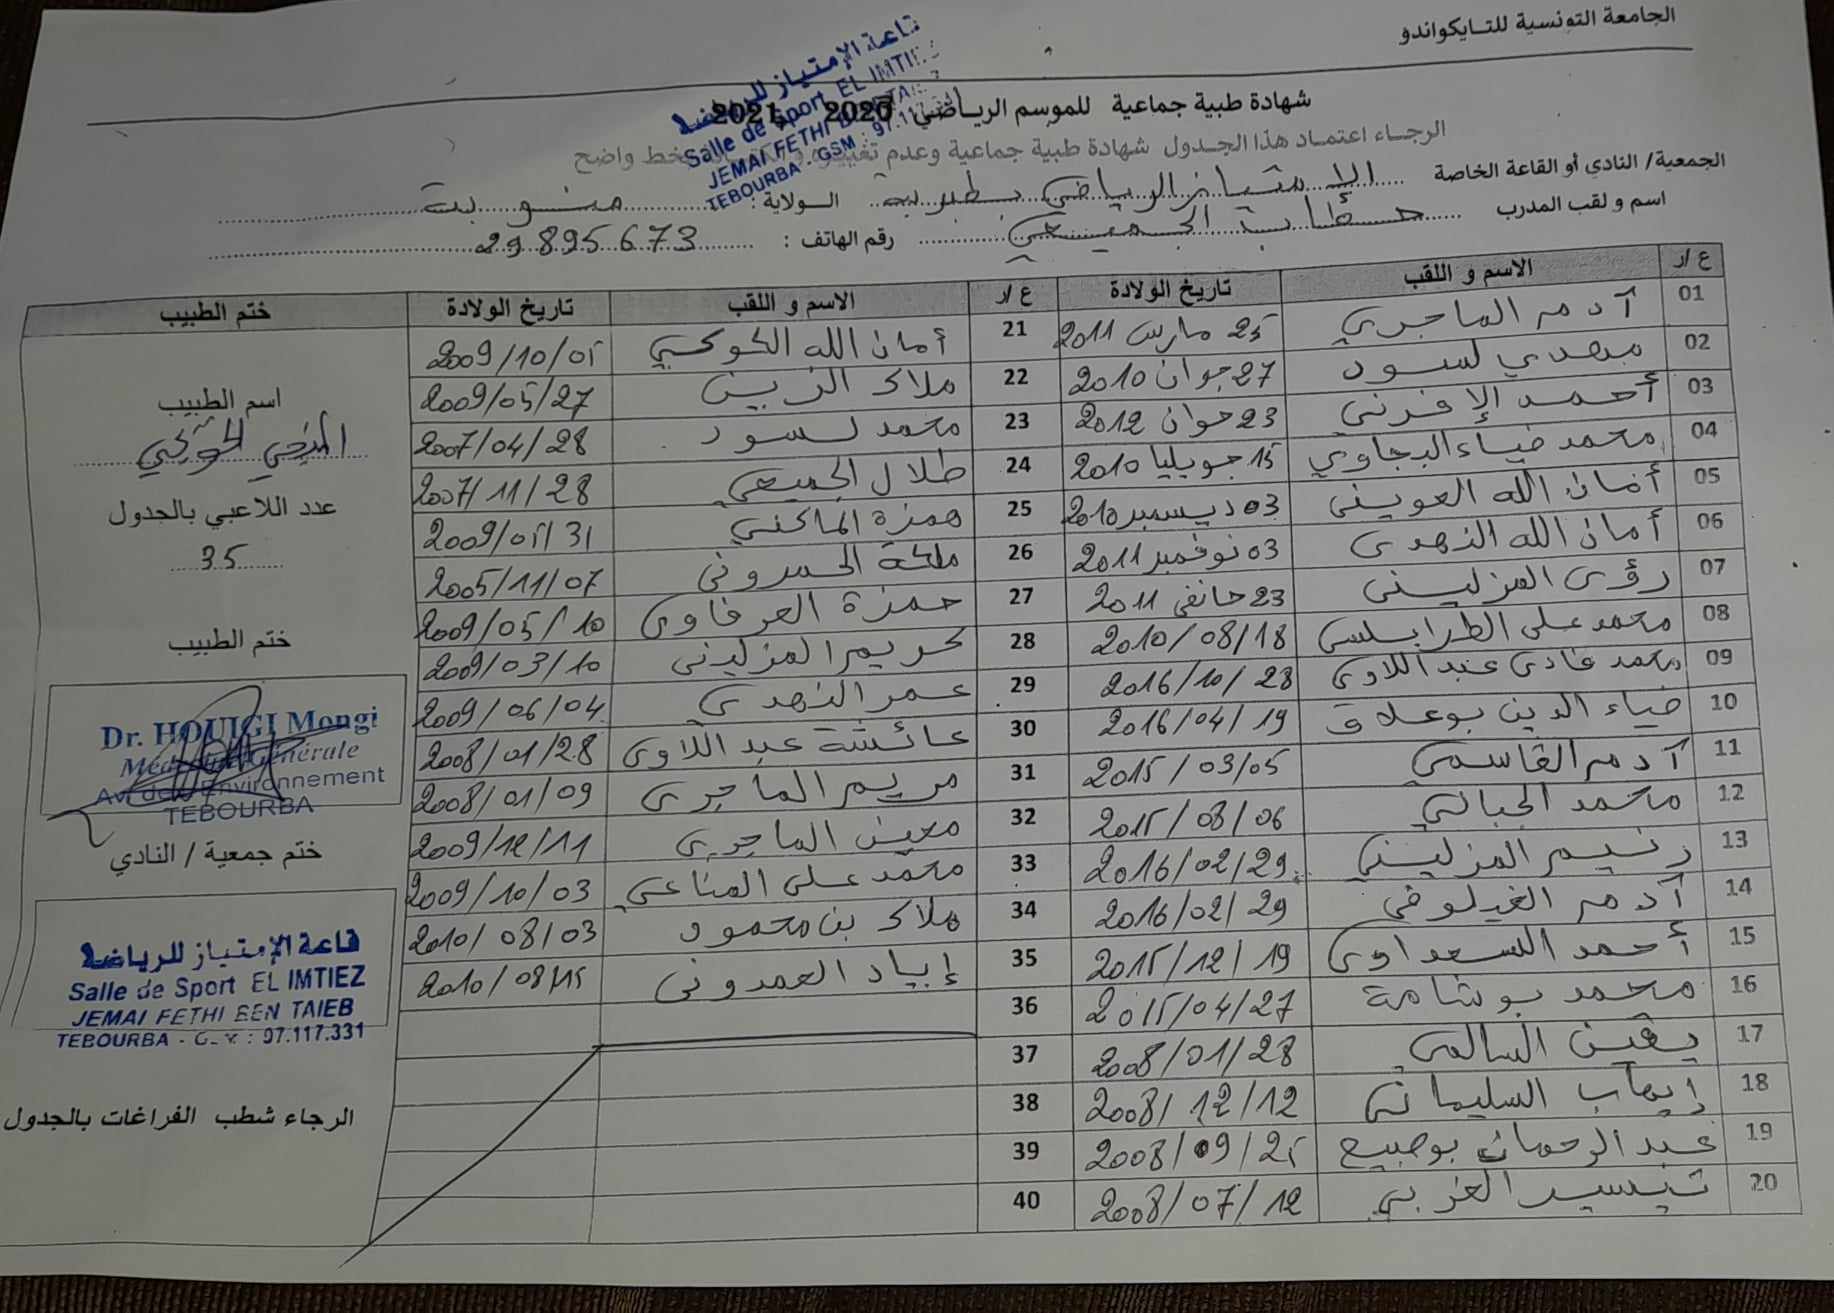 الجامعة التونسية للتايكواندو
شهادة طبية جماعية للموسم الرياضي 2020 2021
قاعة الإمتياز للرياضة
Salle de Sport EL IMTIEZ
JEMAI FETHI BEN TAIEB
TEBOURBA - GSM : 97.11
الرجاء اعتماد هذا الجدول شهادة طبية جماعية وعدم تغييره خط واضح
الجمعية/ النادي أو القاعة الخاصة الامتياز الرياضي بطبربه الولاية : منوبة
اسم و لقب المدرب الجميعي رقم الهاتف : 29 895 673
ع/ر الاسم و اللقب تاريخ الولادة ع/ر الاسم و اللقب تاريخ الولادة ختم الطبيب
01 آدم الماجري 25 مارس 2011 21 أمان الله الكوكي 2009/10/01
02 مهدي لسود 27 جوان 2010 22 ملاك الزين 2009/05/27
03 أحمد الإفرني 23 جوان 2012 23 محمد لسود 2007/04/28
04 محمد ضياء البجاوي 15 جويليا 2010 24 طلال الجميعي 2007/11/28
05 أمان الله العويني 03 ديسمبر 2010 25 همزة الماكني 2009/01/31
06 أمان الله النهدي 03 نوفمبر 2011 26 ملكة الحمروني 2005/11/07
07 رؤى المزليني 23 جانفي 2011 27 حمزة العرفاوي 2009/05/10
08 محمد علي الطرابلسي 2010/08/18 28 كريم المزليني 2009/03/10
09 محمد غادي عبد اللاوي 2016/10/28 29 عمر النهدي 2009/06/04
10 ضياء الدين بوعلاق 2016/04/19 30 عائشة عبد اللاوي 2008/01/28
11 آدم القاسمي 2015/03/05 31 مريم الماجري 2008/01/09
12 محمد الجبالي 2015/08/06 32 معين الماجري 2009/12/11
13 رنيم المزليني 2016/02/29 33 محمد علي المناعي 2009/10/03
14 آدم الغيلوفي 2016/02/29 34 ملاك بن محمود 2010/08/03
15 أحمد السعداوي 2015/12/19 35 إياد العمدوني 2010/08/15
16 محمد بوشامة 2015/04/27 36
17 يقين السالمي 2008/01/28 37
18 إيهاب السليماني 2008/12/12 38
19 عبد الرحمان بوصبيع 2008/09/21 39
20 تيسير الغربي 2008/07/12 40
اسم الطبيب
المنجي الحويجي
عدد اللاعبي بالجدول
35
ختم الطبيب
Dr. HOUIGI Mongi
Médecine Générale
Av. de l'Environnement
TEBOURBA
ختم جمعية / النادي
قاعة الإمتياز للرياضة
Salle de Sport EL IMTIEZ
JEMAI FETHI BEN TAIEB
TEBOURBA - GSM : 97.117.331
الرجاء شطب الفراغات بالجدول